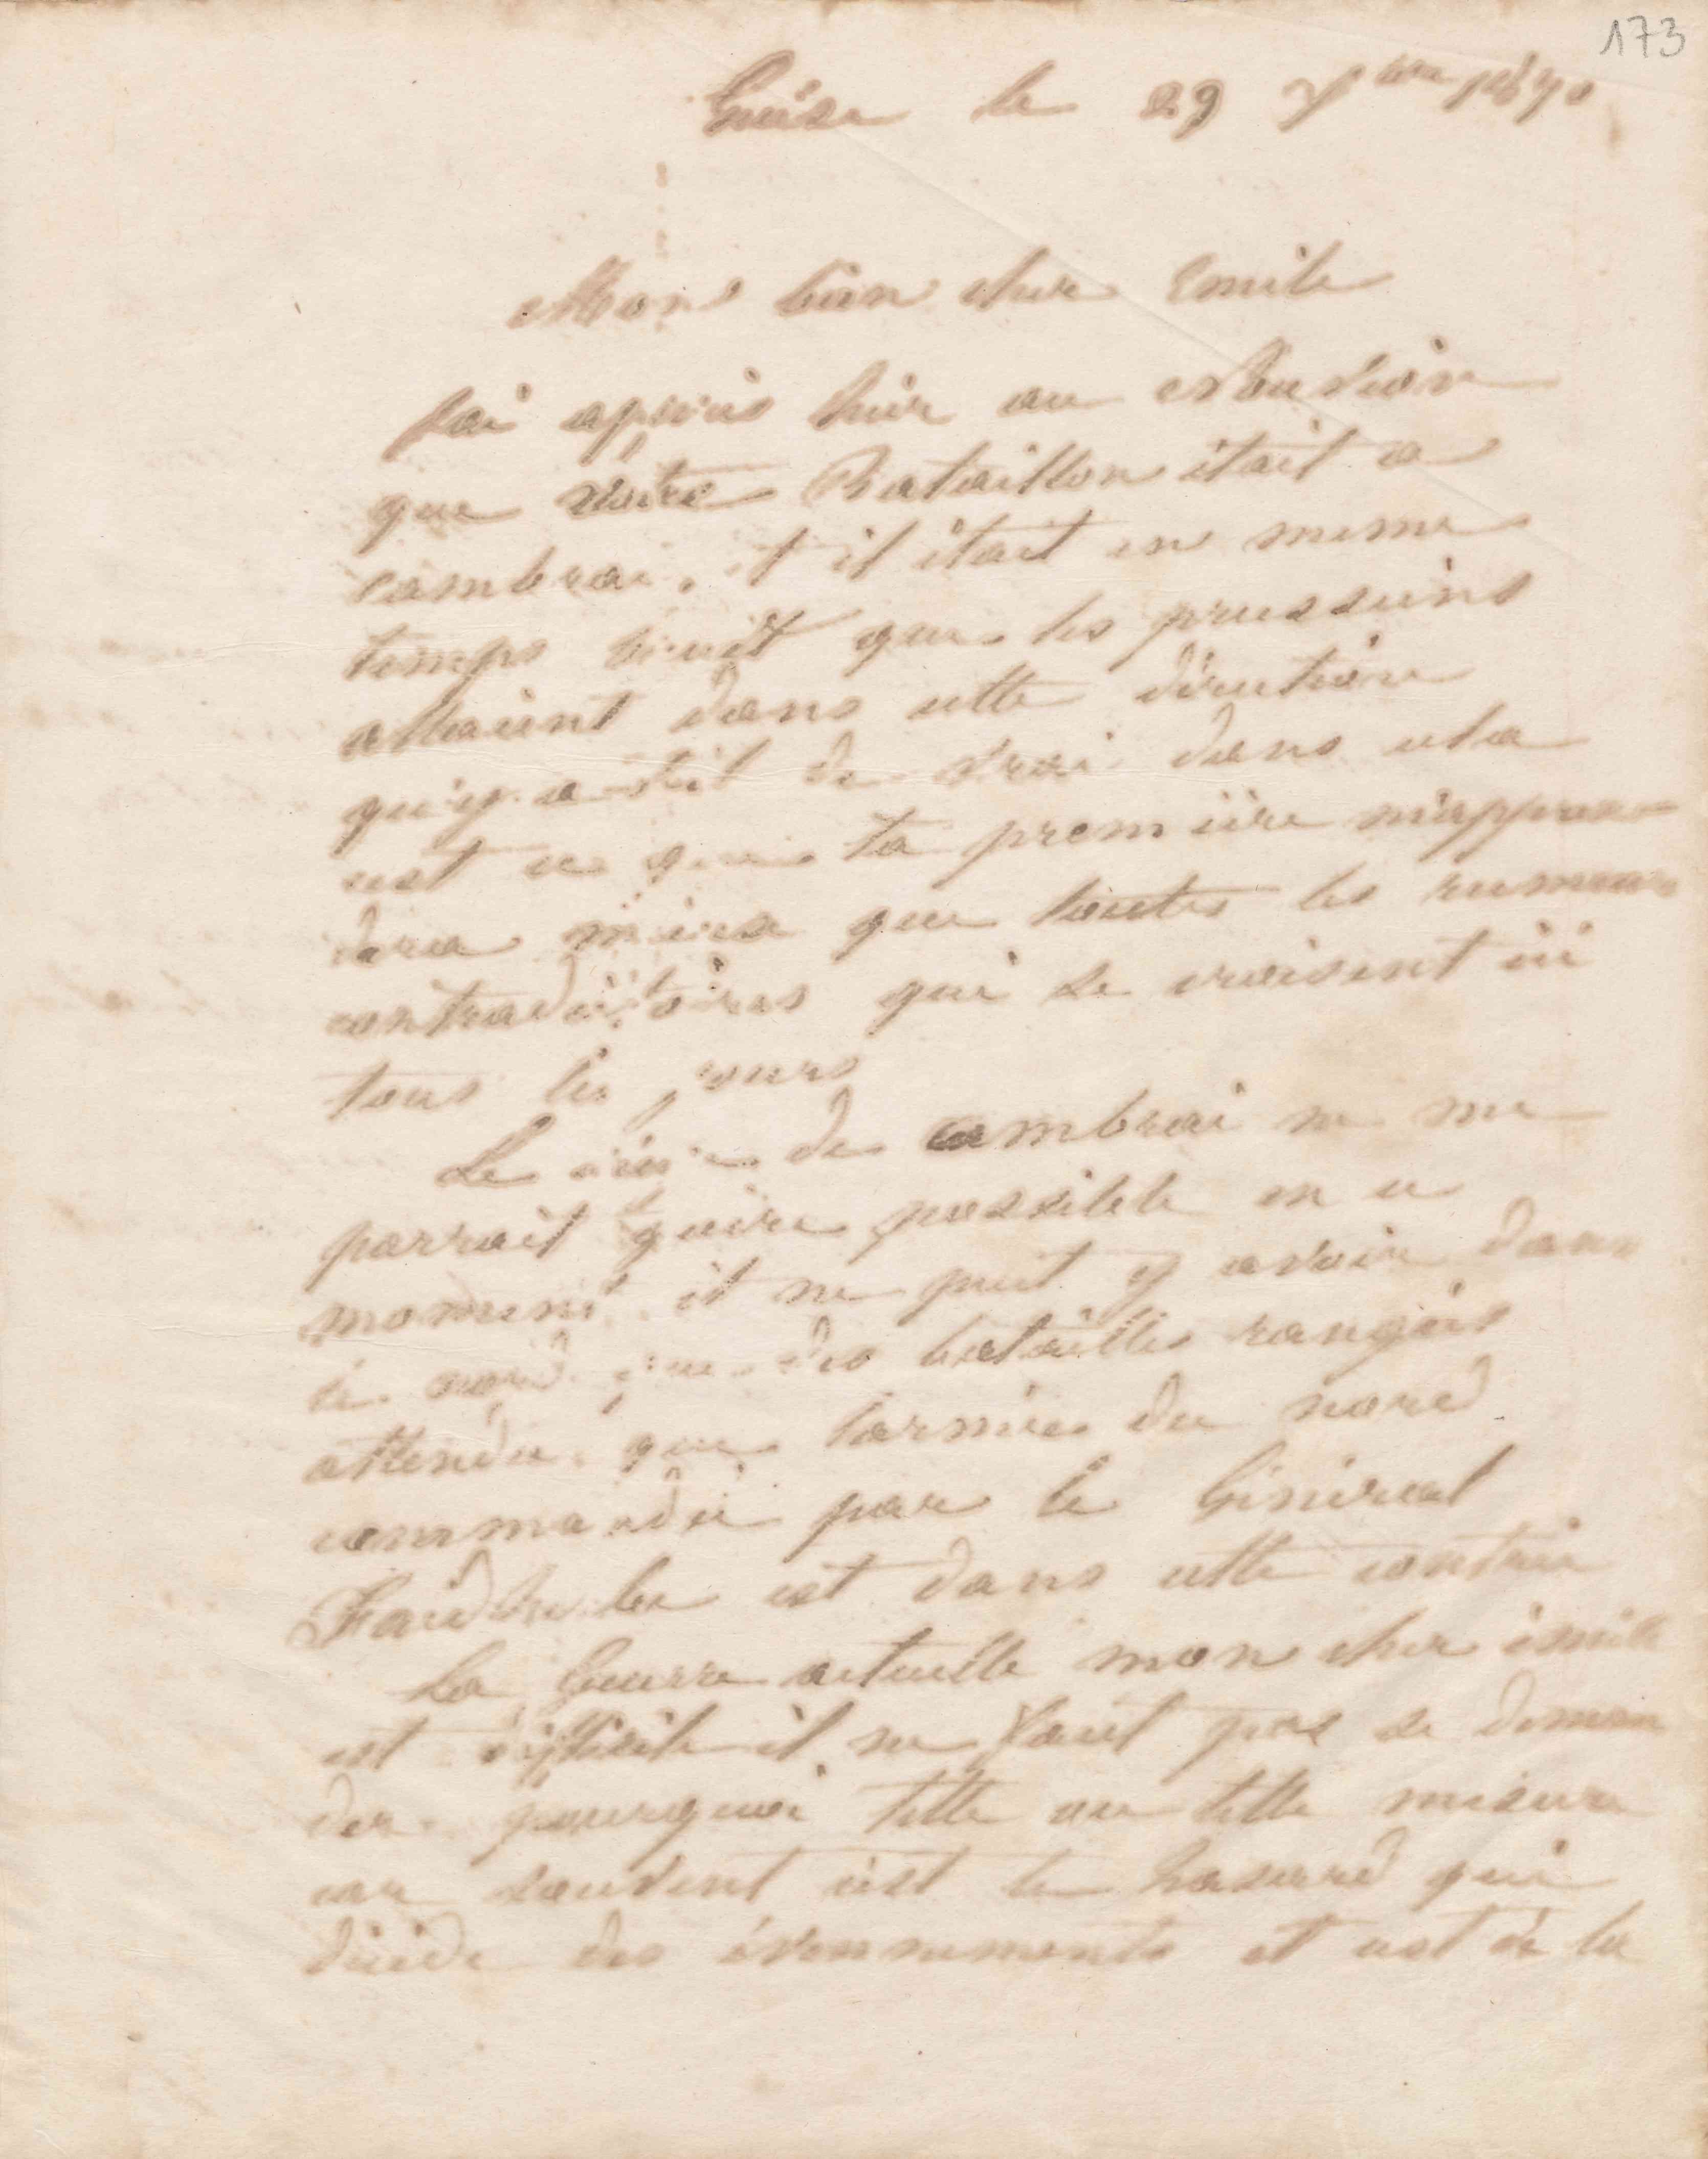 173
Guise le 29 Xbre 1870
Mon bien cher Emile
J'ai appris hier au Nouvion
que votre Bataillon était a
Cambrai, et il était en meme
temps bruit que les prussiens
allaient dans cette direction
qu'y a-t-il de vrai dans cela
c'est ce que ta première m'appren
dra mieux que toutes les rumeurs
contradictoires qui se croisent ici
tous les jours
Le siège de Cambrai ne me
parrait guère possible en ce
moment, il ne peut y avoir dans
le nord que des batailles rangées
attendu que l'armée du nord
commandée par le Général
Faidherbe est dans cette contrée
La Guerre actuelle mon cher émile
est difficile il ne faut pas se deman
der pourquoi telle ou telle mesure
car souvent c'est le hasard qui
décide des évennements et c'est à la